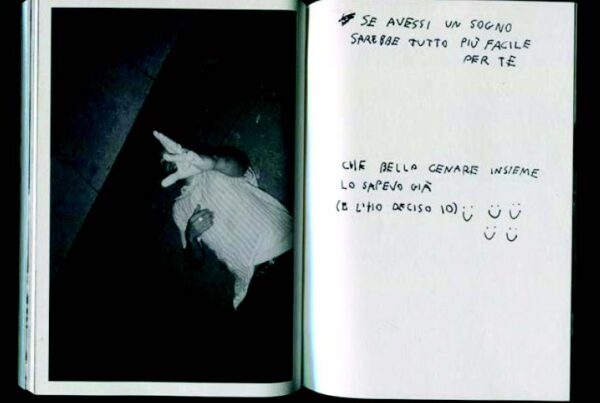 SE AVESSI UN SOGNO
SAREBBE TUTTO PIÙ FACILE
PER TE
CHE BELLO CENARE INSIEME
LO SAPEVO GIÀ
(E L'HO DECISO IO)